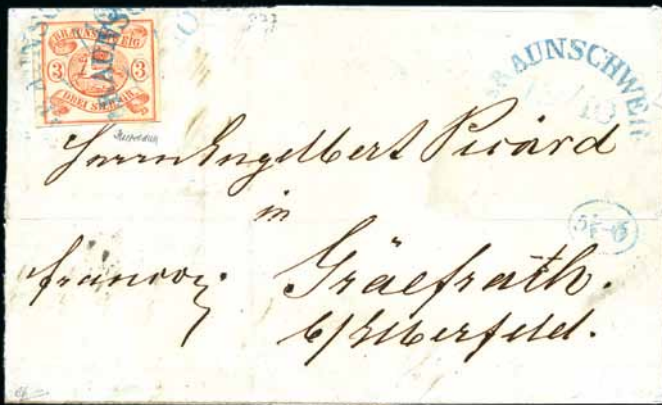 BRAUNSCHWEIG
3 3
DREI SILBGR
BRAUNSCHWEIG
Herrn Engelbert Picard
in
franco
Gräefrath.
b/Elberfeld.